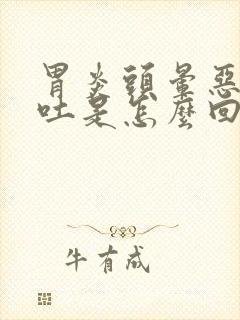 胃炎頭暈惡
吐是怎麼回
牛有成